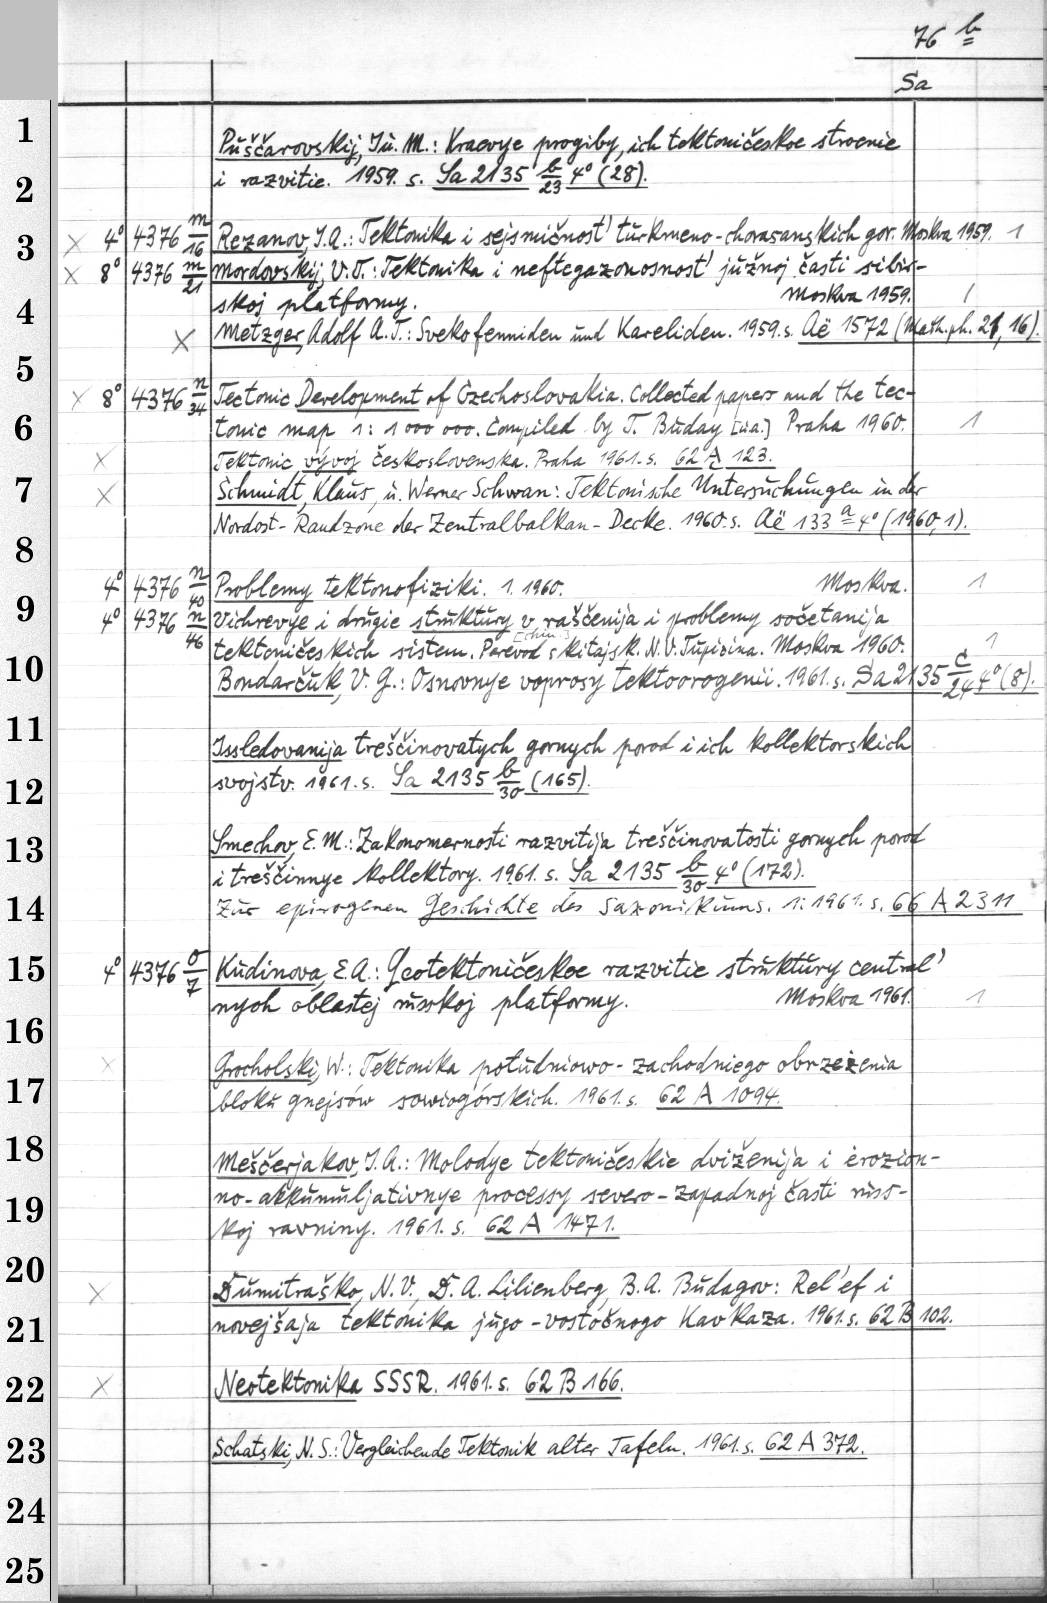 76 b
Sa
1
Puščarovskij, Ju. M.: Kraevye progiby, ich tektoničeskoe stroenie
2
i razvitie. 1959. s. Sa 2135 b/23 4° (28).
3
× 4° 4376 m/16 Rezanov, I.A.: Tektonika i sejsmičnost' turkmeno-chorasanskich gor. Moskva 1959. 1
× 8° 4376 m/21 Mordovskij, V.T.: Tektonika i neftegazonosnost' južnoj časti sibir-
4
skoj platformy. Moskva 1959. 1
× Metzger, Adolf A.T.: Svekofenniden und Kareliden. 1959. s. Aë 1572 (Math. ph. 21, 16).
5
× 8° 4376 n/34 Tectonic Development of Czechoslovakia. Collected papers and the tec-
6
tonic map 1:1 000 000. Compiled by T. Buday [u.a.] Praha 1960. 1
× Tektonic vývoj československa. Praha 1961. s. 62 A 123.
7
× Schmidt, Klaus, u. Werner Schwan: Tektonische Untersuchungen in der
Nordost-Randzone der Zentralbalkan-Decke. 1960. s. Aë 133 a 4° (1960, 1).
8
4° 4376 n/40 Problemy tektonofiziki. 1. 1960. Moskva. 1
9
4° 4376 n/46 Vichrevye i drugie struktury v raščenija i problemy sočetanija
[chin.]
tektoničeskich sistem. Perevod s kitajsk. N.V. Tupicina. Moskva 1960. 1
10
Bondarčuk, V. G.: Osnovnye voprosy tektoorogenii. 1961. s. Sa 2135 c/24 4° (8).
11
Issledovanija treščinovatych gornych porod i ich kollektorskich
12
svojstv. 1961. s. Sa 2135 b/30 (165).
13
Smechov, E. M.: Zakonomernosti razvitija treščinovatosti gornych porod
i treščinnye kollektory. 1961. s. Sa 2135 b/30 4° (172).
14
Zur epirogenen Geschichte des Saxonikums. 1. 1961. s. 66 A 2311
15
4° 4376 o/7 Kudinova, E.A.: Geotektoničeskoe razvitie struktury central'
nych oblastej russkoj platformy. Moskva 1961. 1
16
× Grocholski, W.: Tektonika południowo-zachodniego obrzeżenia
17
bloku gnejsów sowiogórskich. 1961. s. 62 A 1094.
18
Meščerjakov, I.A.: Molodye tektoničeskie dviženija i erozion-
19
no-akkumuljativnye processy severo-zapadnoj časti russ-
koj ravniny. 1961. s. 62 A 1471.
20
× Dumitraško, N.V., D. A. Lilienberg, B.A. Budagov: Rel'ef i
21
novejšaja tektonika jugo-vostočnogo Kavkaza. 1961. s. 62 B 102.
22
× Neotektonika SSSR. 1961. s. 62 B 166.
23
Schatski, N. S.: Vergleichende Tektonik alter Tafeln. 1961. s. 62 A 372.
24
25